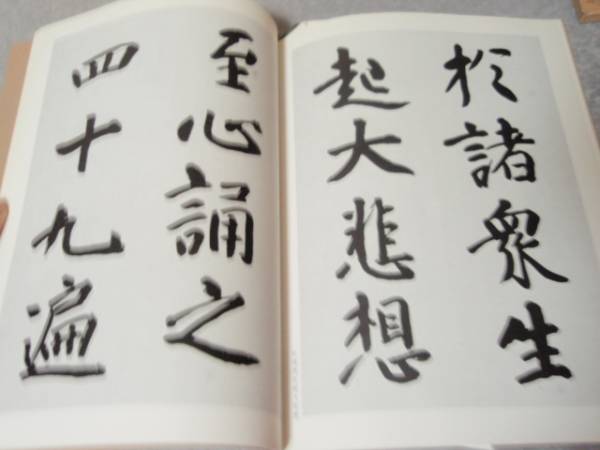 於諸衆生
起大悲想
至心誦之
四十九遍